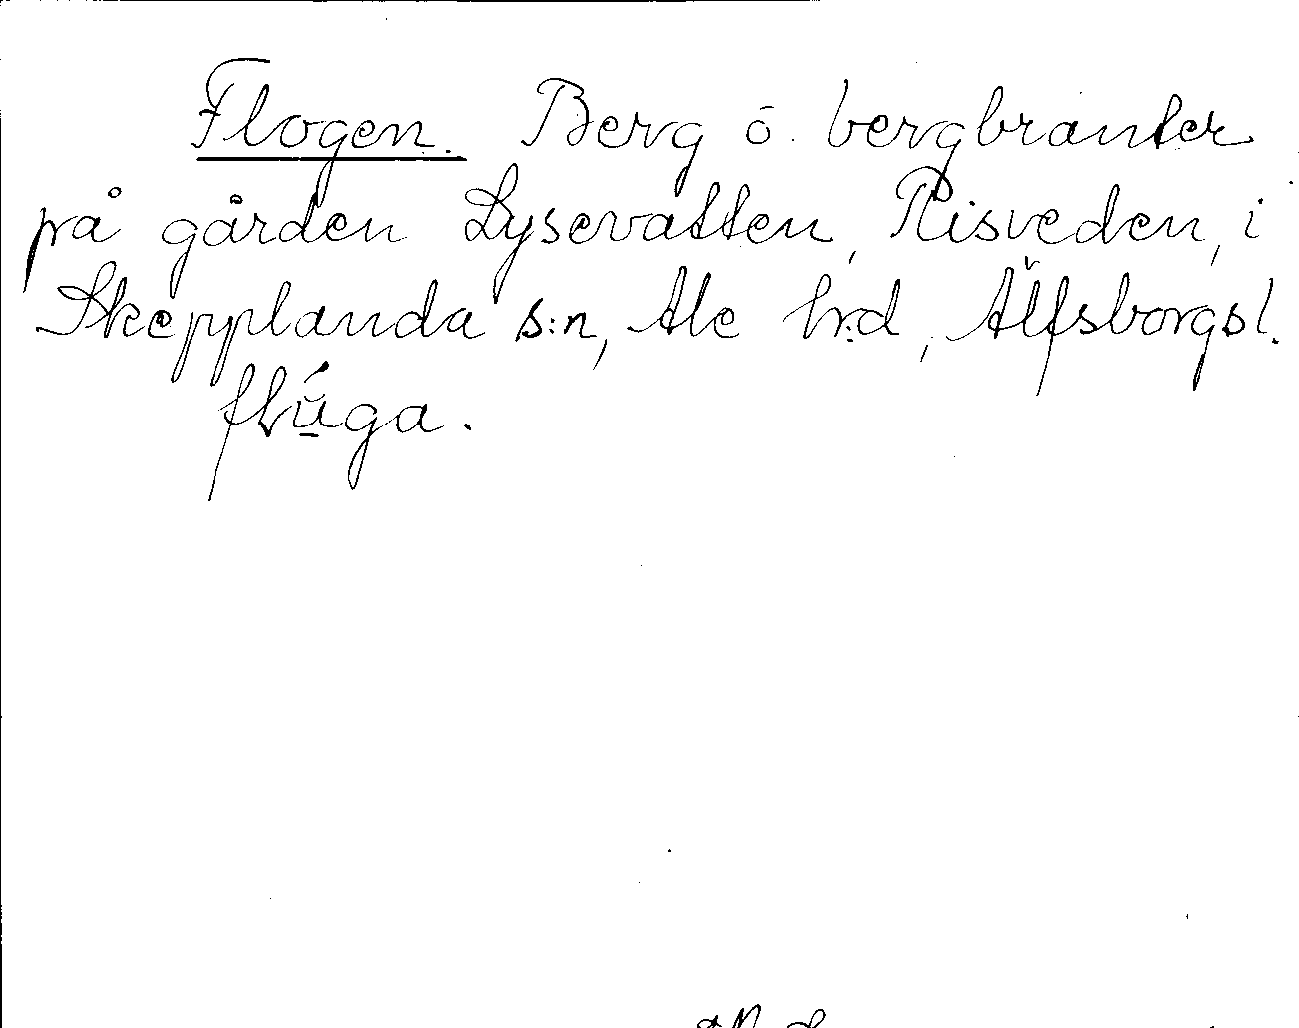 Flogen. Berg o. bergbranter
på gården Lysevatten, Risveden, i
Skepplanda s:n, Ale hrd, Älfsborgsl.
flúga.